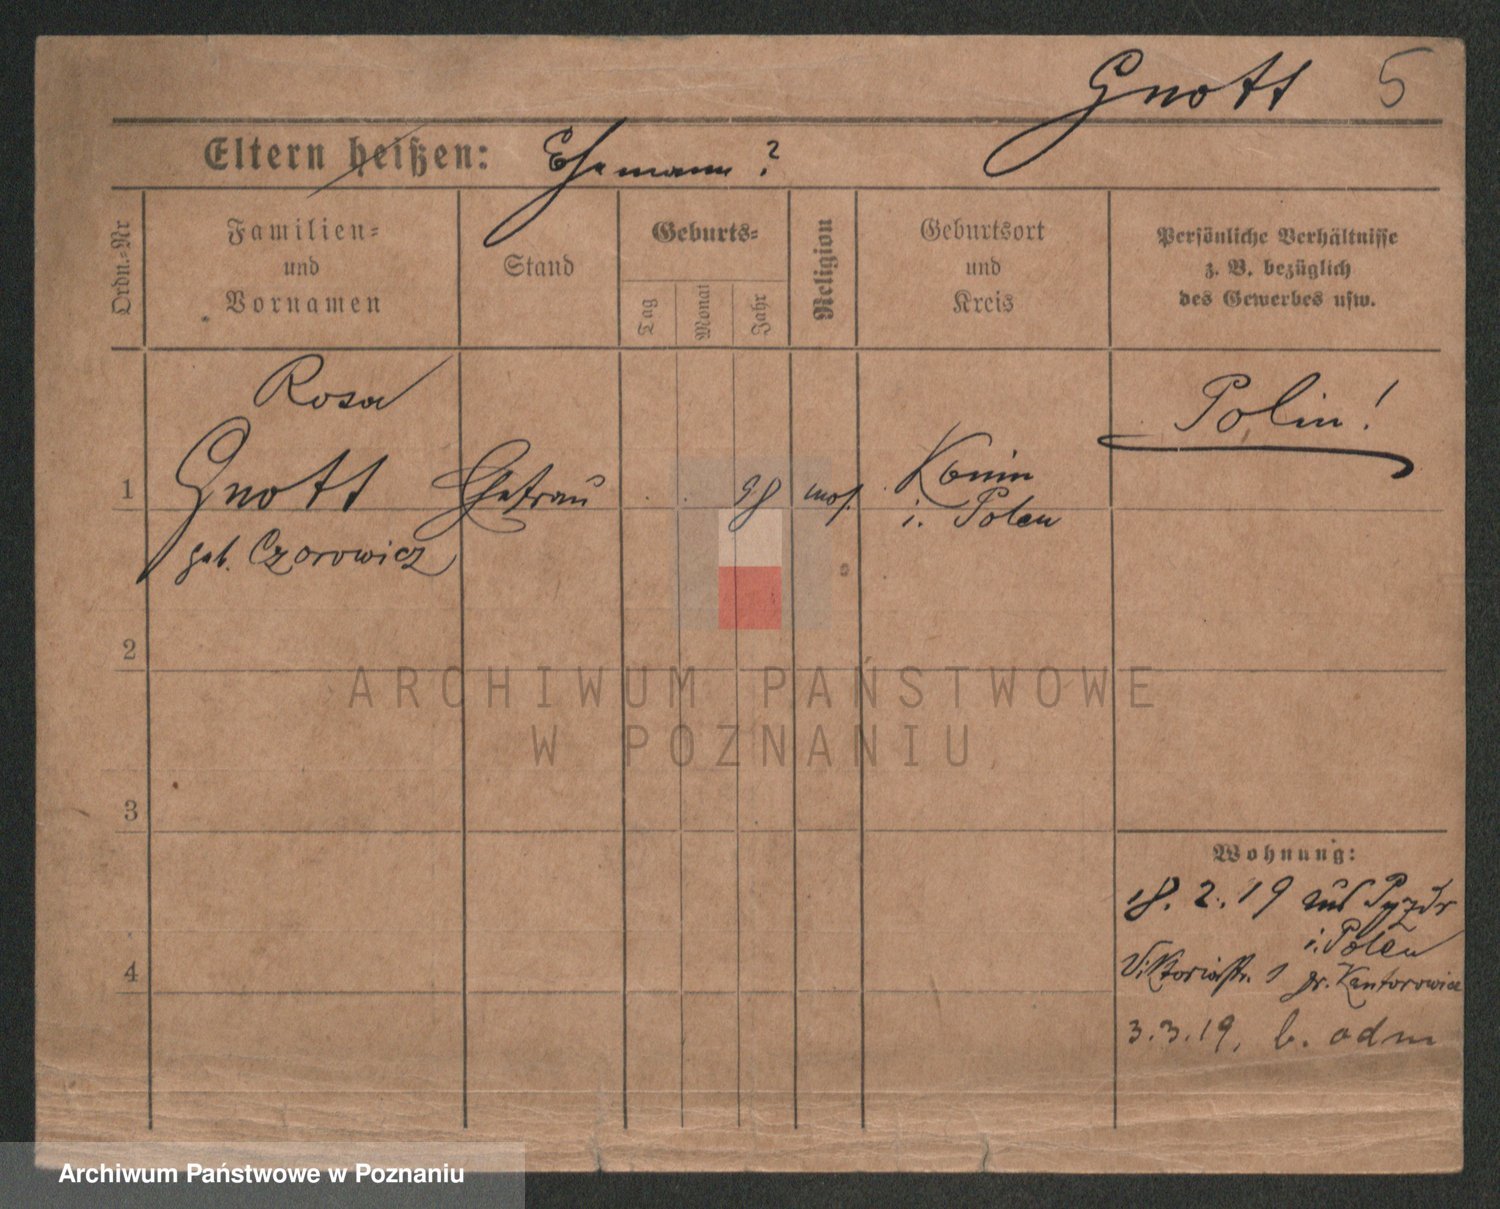 Gnott 5
Eltern heißen: Ehemann?
Ordn.-Nr
Familien-
und
Vornamen
Stand
Geburts-
Tag
Monat
Jahr
Religion
Geburtsort
und
Kreis
Persönliche Verhältnisse
z. B. bezüglich
des Gewerbes usw.
Rosa
Polin!
1 Gnott Ehefrau 98 mos. Konin
i. Polen
geb. Czarowicz
2
ARCHIWUM PAŃSTWOWE
W POZNANIU
3
Wohnung:
18.2.19 aus Pyzdr
i. Polen
4
Viktoriastr. Kantorowicz
3.3.19, b. odm
Archiwum Państwowe w Poznaniu